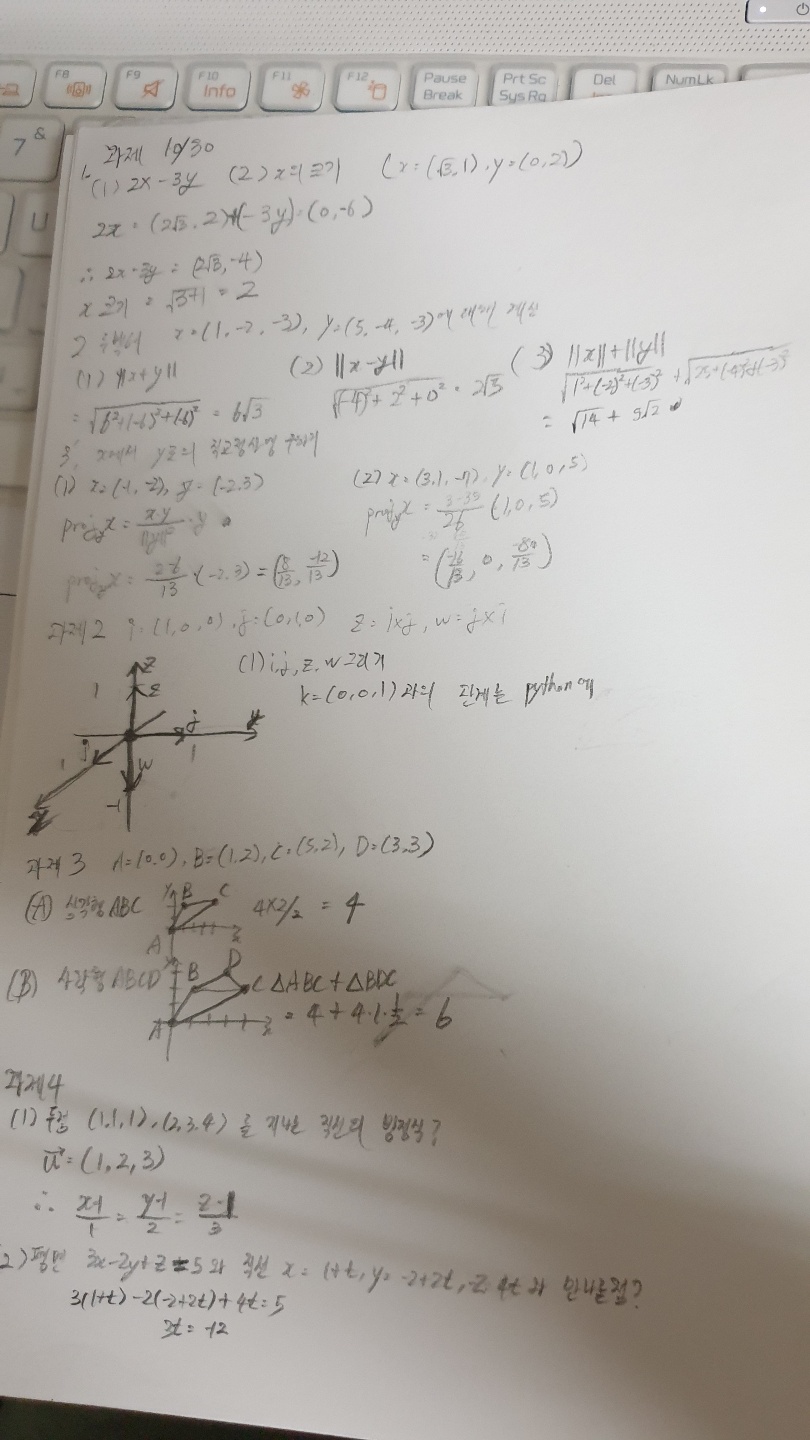 F8
F9
F10 Info
F11
F12
Pause Break
Prt Sc Sys Rq
Del
NumLk
7 &
U
과제 10/30
1. (1) 2x-3y (2) x의 크기 (x=(√3,1), y=(0,2))
2x=(2√3,2)+(-3y)=(0,-6)
∴ 2x-3y=(2√3,-4)
x 크기 = √3+1 = 2
2 두벡터 x=(1,-2,-3), y=(5,-4,-3)에 대해 계산
(1) ||x+y|| (2) ||x-y|| (3) ||x||+||y||
= √6²+(-6)²+(-6)² = 6√3 √(-4)²+2²+0² = 2√5 √1²+(-2)²+(-3)² + √25+(-4)²+(-3)²
= √14 + 5√2
3. x에서 y로의 직교정사영 구하기
(1) x=(-1,-2), y=(-2,3) (2) x=(3,1,-7), y=(1,0,5)
proj_y x = x·y/||y||² · y proj_y x = 3-35/26 (1,0,5)
proj_y x = 2-6/13 · (-2,3) = (8/13, -12/13) = (-16/13, 0, -80/13)
과제2 i=(1,0,0), j=(0,1,0) z=i×j, w=j×i
(1) i,j,z,w 그리기
k=(0,0,1)과의 관계는 python에
z
1
z
j
y
i
1
1
w
-1
x
과제3 A=(0,0), B=(1,2), C=(5,2), D=(3,3)
(A) 삼각형 ABC 4×2/2 = 4
y B C
A x
(B) 사각형 ABCD △ABC + △BDC
y B D C
A x
= 4+4·1·1/2 = 6
과제4
(1) 두점 (1,1,1), (2,3,4)를 지나는 직선의 방정식?
u=(1,2,3)
∴ x-1/1 = y-1/2 = z-1/3
2) 평면 3x-2y+z=5와 직선 x=1+t, y=-2+2t, z=4t와 만나는점?
3(1+t)-2(-2+2t)+4t=5
3t=-12